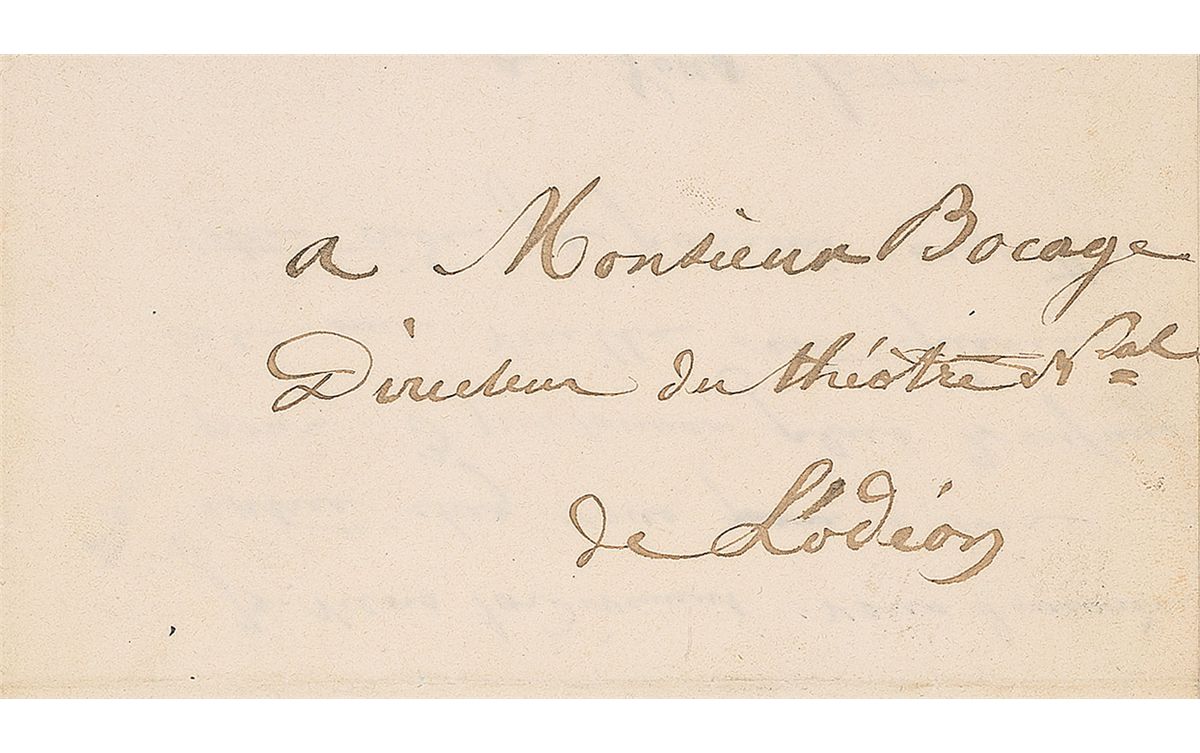 a Monsieur Bocage
Directeur du théâtre
de L'odéon